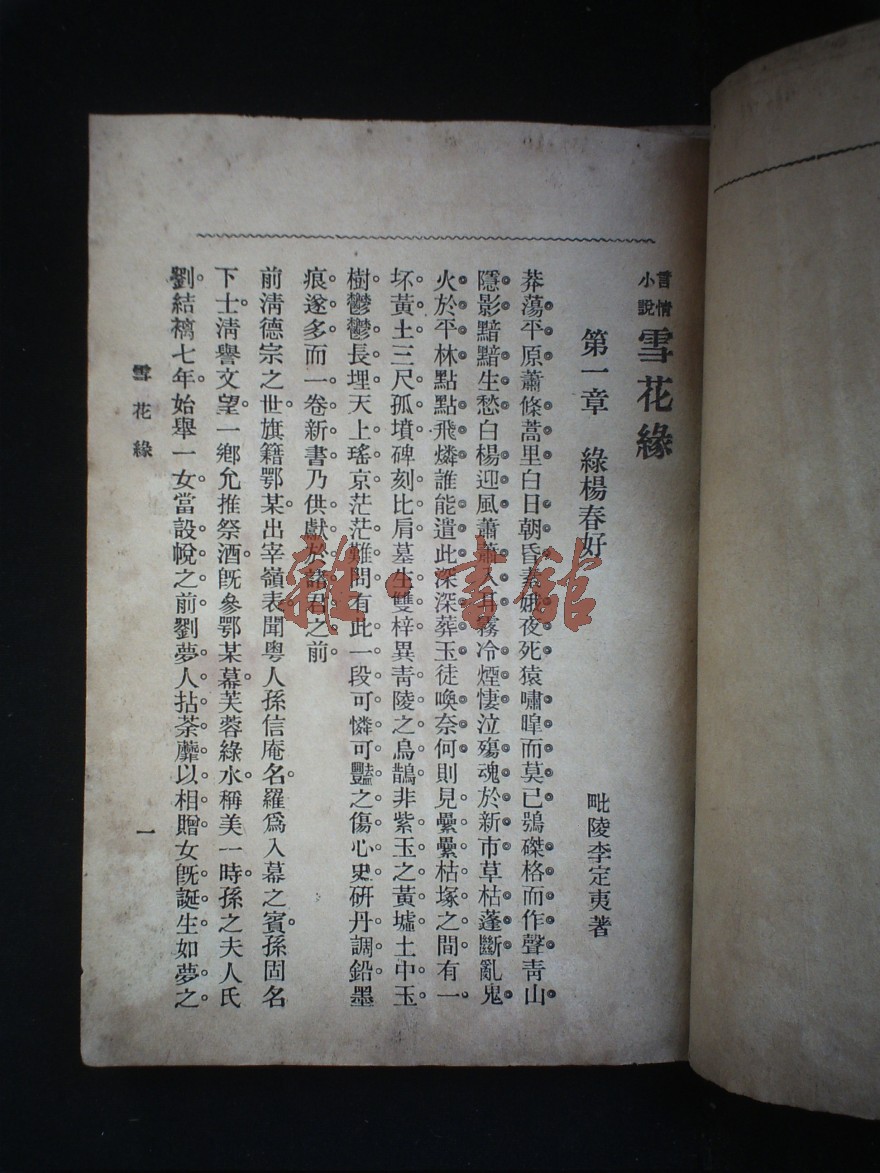 言情小說 雪花緣
第一章 綠楊春好
毗陵李定夷著
莽蕩平原蕭條蒿里白日朝昏素娥夜死猿嘯嘷而莫已鴞磔格而作聲靑山
隱影黯黯生愁白楊迎風蕭蕭入耳霧冷煙悽泣殤魂於新市草枯蓬斷亂鬼
火於平林點點飛燐誰能遣此深深葬玉徒喚奈何則見纍纍枯塚之間有一
坏黃土三尺孤墳碑刻比肩墓生雙梓異靑陵之烏鵲非紫玉之黃墟土中玉
樹鬱鬱長埋天上瑤京茫茫難問有此一段可憐可豔之傷心史硏丹調鉛墨
痕遂多而一卷新書乃供獻於諸君之前
前淸德宗之世旗籍鄂某出宰嶺表聞粵人孫信庵名羅爲入幕之賓孫固名
下士淸譽文望一鄕允推祭酒旣參鄂某幕芙蓉綠水稱美一時孫之夫人氏
劉結褵七年始舉一女當設帨之前劉夢人拈荼蘼以相贈女旣誕生如夢之
雪花緣
一
雜·書館